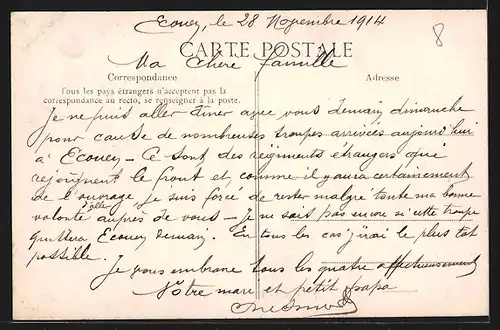 Ecouen, le 28 Novembre 1914
CARTE POSTALE
Ma chère famille
Correspondance
Adresse
Tous les pays étrangers n'acceptent pas la
correspondance au recto, se renseigner à la poste.
8
Je ne puis aller diner avec vous demain dimanche
pour cause de nombreuses troupes arrivées aujourd'hui
à Ecouen - Ce sont des régiments étrangers qui
rejoignent le front et comme il y aura certainement
de l'ouvrage je suis forcé de rester malgré toute ma bonne
volonté d'aller auprès de vous - je ne sais pas encore si cette troupe
quittera Ecouen demain. En tous les cas j'irai le plus tôt
possible.
Je vous embrasse tous les quatre affectueusement
Votre mari et petit papa